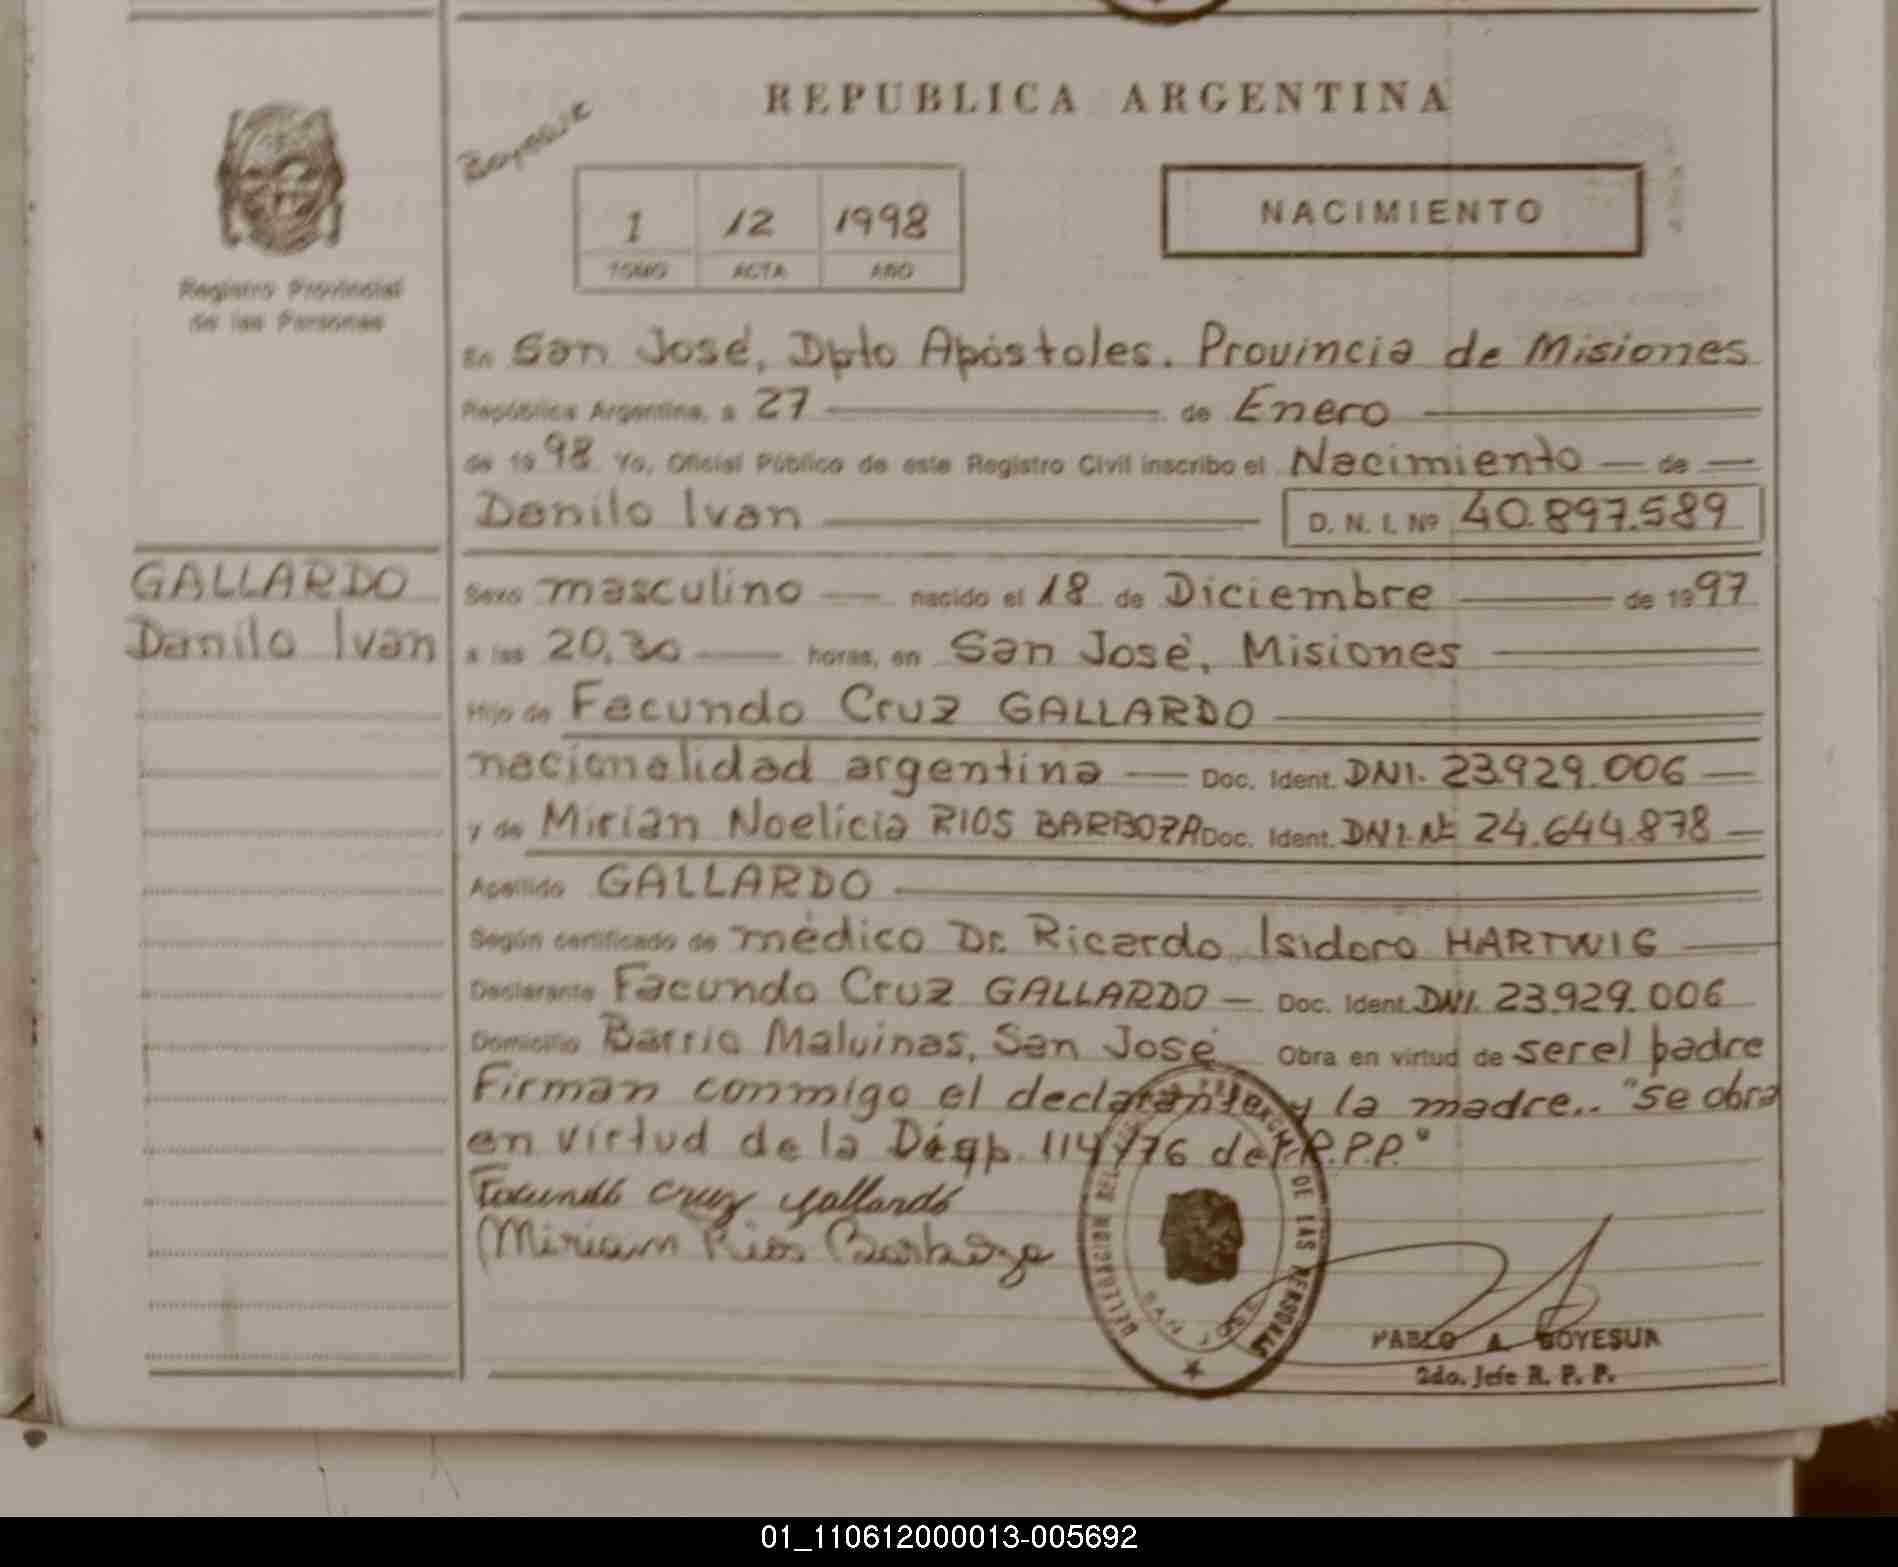 REPUBLICA ARGENTINA
Boyesur
1 12 1998
TOMO ACTA AÑO
NACIMIENTO
Registro Provincial
de las Personas
En San José, Dpto Apóstoles. Provincia de Misiones
República Argentina, a 27 de Enero
de 1998 Yo, Oficial Público de este Registro Civil inscribo el Nacimiento de
Danilo Ivan D. N. I. Nº 40.897.589
GALLARDO
Danilo Ivan
Sexo masculino nacido el 18 de Diciembre de 1997
a las 20,30 horas, en San José, Misiones
Hijo de Facundo Cruz GALLARDO
nacionalidad argentina Doc. Ident. DNI. 23.929.006
y de Mirian Noelicia RIOS BARBOZA Doc. Ident. DNI.Nº 24.644.878
Apellido GALLARDO
Según certificado de médico Dr. Ricardo Isidoro HARTWIG
Declarante Facundo Cruz GALLARDO Doc. Ident. DNI. 23.929.006
Domicilio Barrio Malvinas, San José Obra en virtud de ser el padre
Firman conmigo el declarante y la madre.. "Se obra
en virtud de la Disp. 114/76 del R.P.P."
Facundo Cruz Gallardo
Miriam Rios Barboza
DELEGACION DEL REGISTRO PROVINCIAL DE LAS PERSONAS
SAN JOSE
PABLO A. BOYESUR
2do. Jefe R. P. P.
01_110612000013-005692